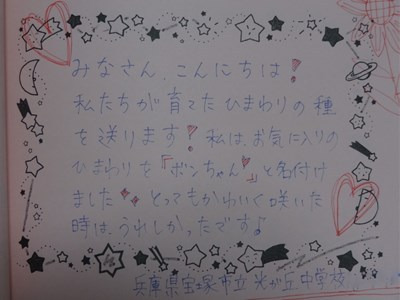 みなさん、こんにちは!
私たちが育てたひまわりの種
を送ります!私は、お気に入りの
ひまわりを『ボンちゃん』と名付け
ました。とってもかわいく咲いた
時は、うれしかったです♪
兵庫県宝塚市立光が丘中学校